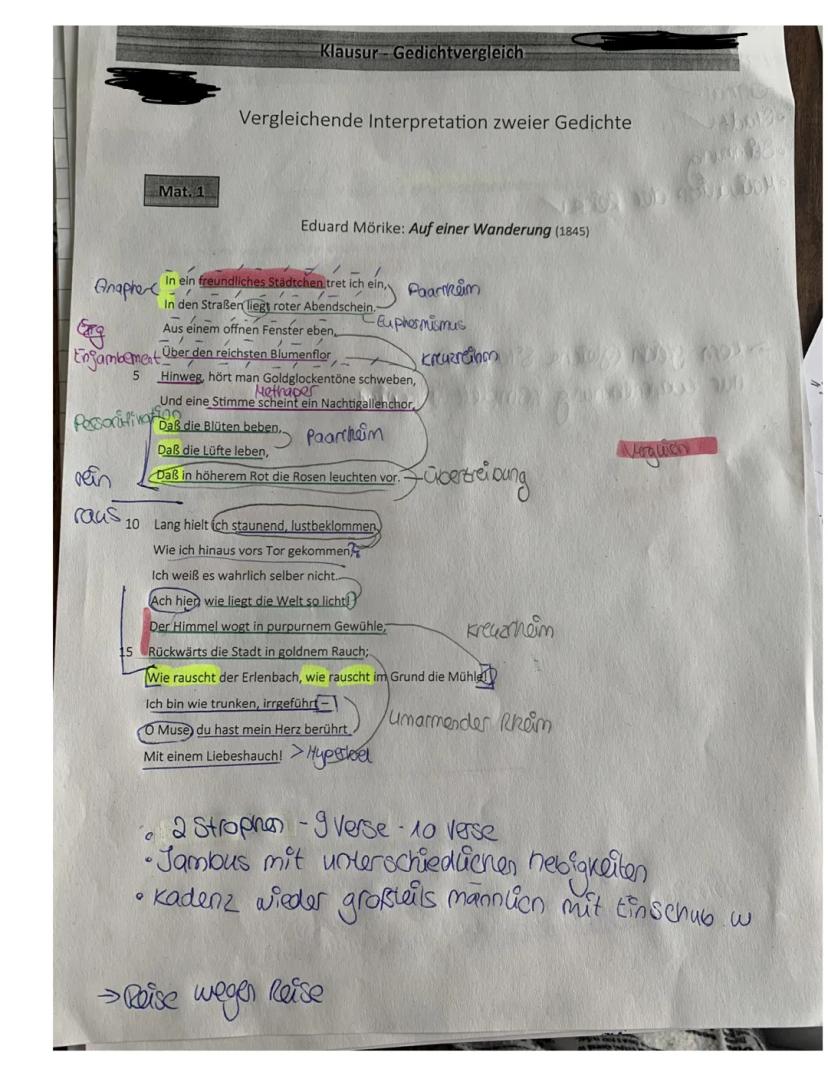 Klausur - Gedichtvergleich
Vergleichende Interpretation zweier Gedichte
Mat. 1
Eduard Mörike: Auf einer Wanderung (1845)
Anapher In ein freundliches Städtchen tret ich ein, Paarrheim
In den Straßen liegt roter Abendschein.
Euphemismus
Aus einem offnen Fenster eben,
Enjambement Über den reichsten Blumenflor Kreuzreihm
5 Hinweg, hört man Goldglockentöne schweben,
Methaper
Und eine Stimme scheint ein Nachtigallenchor,
Daß die Blüten beben, Paarrheim
Daß die Lüfte leben,
Vergleich
rein Daß in höherem Rot die Rosen leuchten vor. Übertreibung
raus
10 Lang hielt ich staunend, lustbeklommen,
Wie ich hinaus vors Tor gekommen,
Ich weiß es wahrlich selber nicht.
Ach hier, wie liegt die Welt so licht!
Der Himmel wogt in purpurnem Gewühle, Kreuzrheim
15 Rückwärts die Stadt in goldnem Rauch;
Wie rauscht der Erlenbach, wie rauscht im Grund die Mühle!
Ich bin wie trunken, irrgeführt –
Umarmender Rheim
O Muse, du hast mein Herz berührt
Mit einem Liebeshauch! > Hyperbel
• 2 Strophen - 9 Verse - 10 Verse
• Jambus mit unterschiedlichen hebigkeiten
• Kadenz wieder großteils männlich mit Einschub w
→ Reise wegen Reise